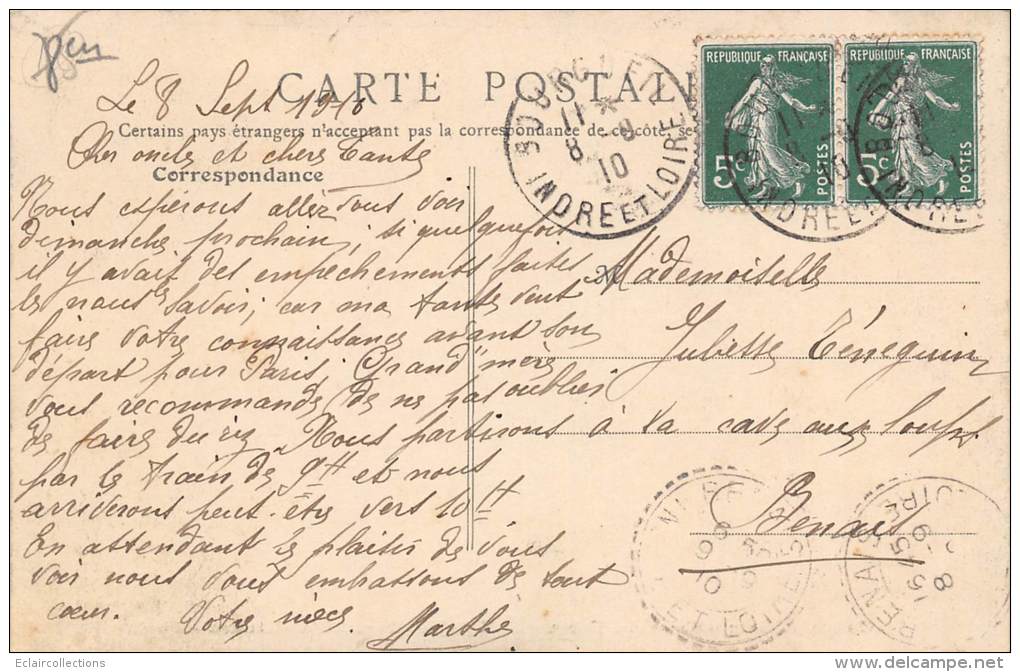 Le 8 Sept 1910
CARTE POSTALE
Certains pays étrangers n'acceptant pas la correspondance de ce côté, se
Cher oncle et chère Tante
Correspondance
Nous espérons aller vous voir
dimanche prochain, si quelquefois
il y avait des empêchements faites
les nous savoir, car ma tante veut
faire votre connaissance avant son
départ pour Paris, Grand'mère
vous recommande de ne pas oublier
de faire du riz Nous partirons
par le train de 9H et nous
arriverons peut-être vers 10H
En attendant le plaisir de vous
voir nous vous embrassons de tout
cœur. Votre nièce
Marthe
Mademoiselle
Juliette
à la cave aux
Benais
RÉPUBLIQUE FRANÇAISE
5c
POSTES
RÉPUBLIQUE FRANÇAISE
5c
POSTES
BOURGUEIL
11 *
8 - 9
10
INDRE ET LOIRE
Eclaircollections
www.delcampe.net